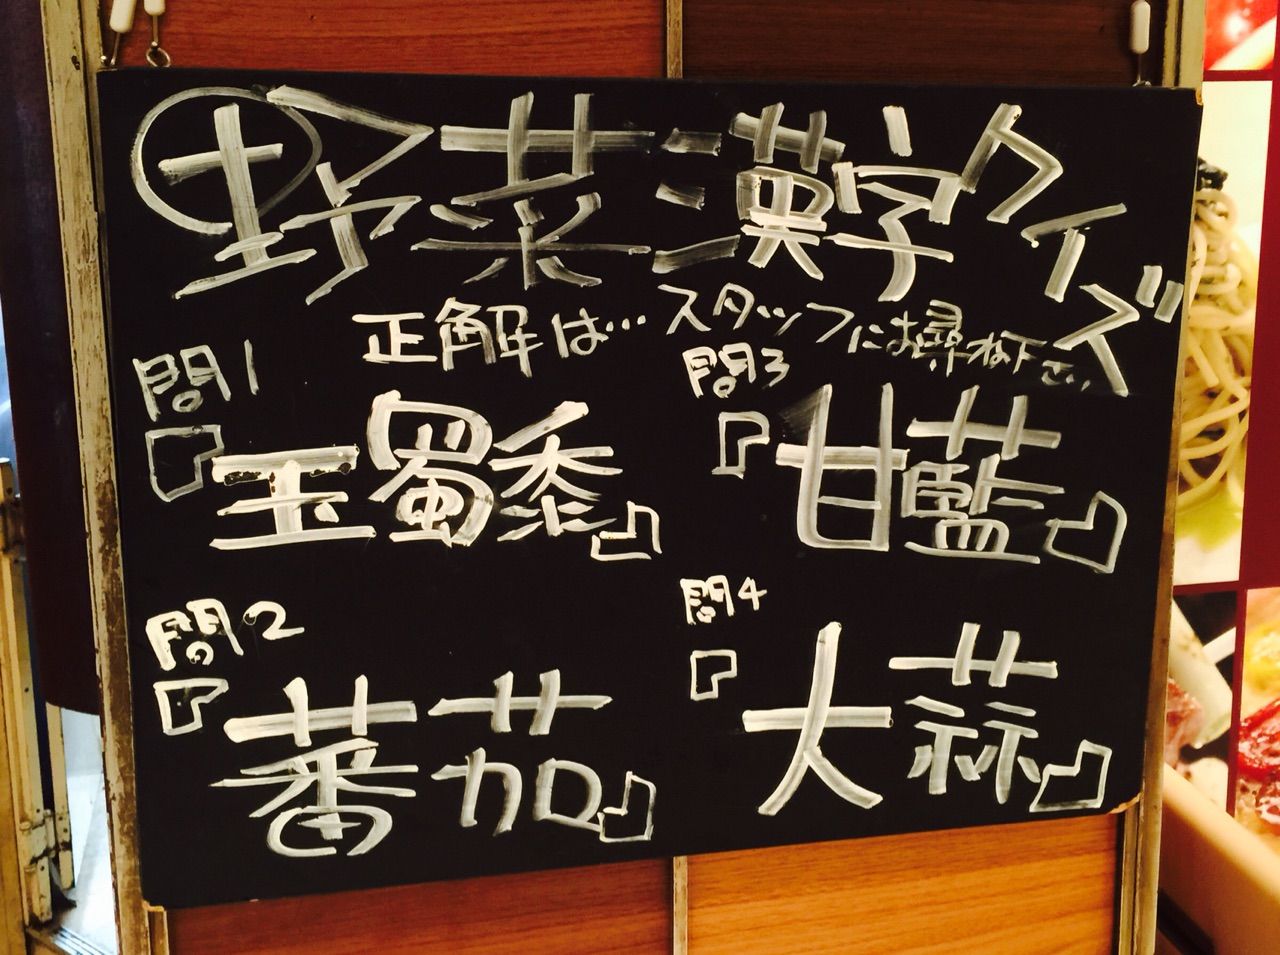 野菜漢字クイズ
正解は…スタッフにお尋ね下さい
問1
『玉蜀黍』
問2
『蕃茄』
問3
『甘藍』
問4
『大蒜』